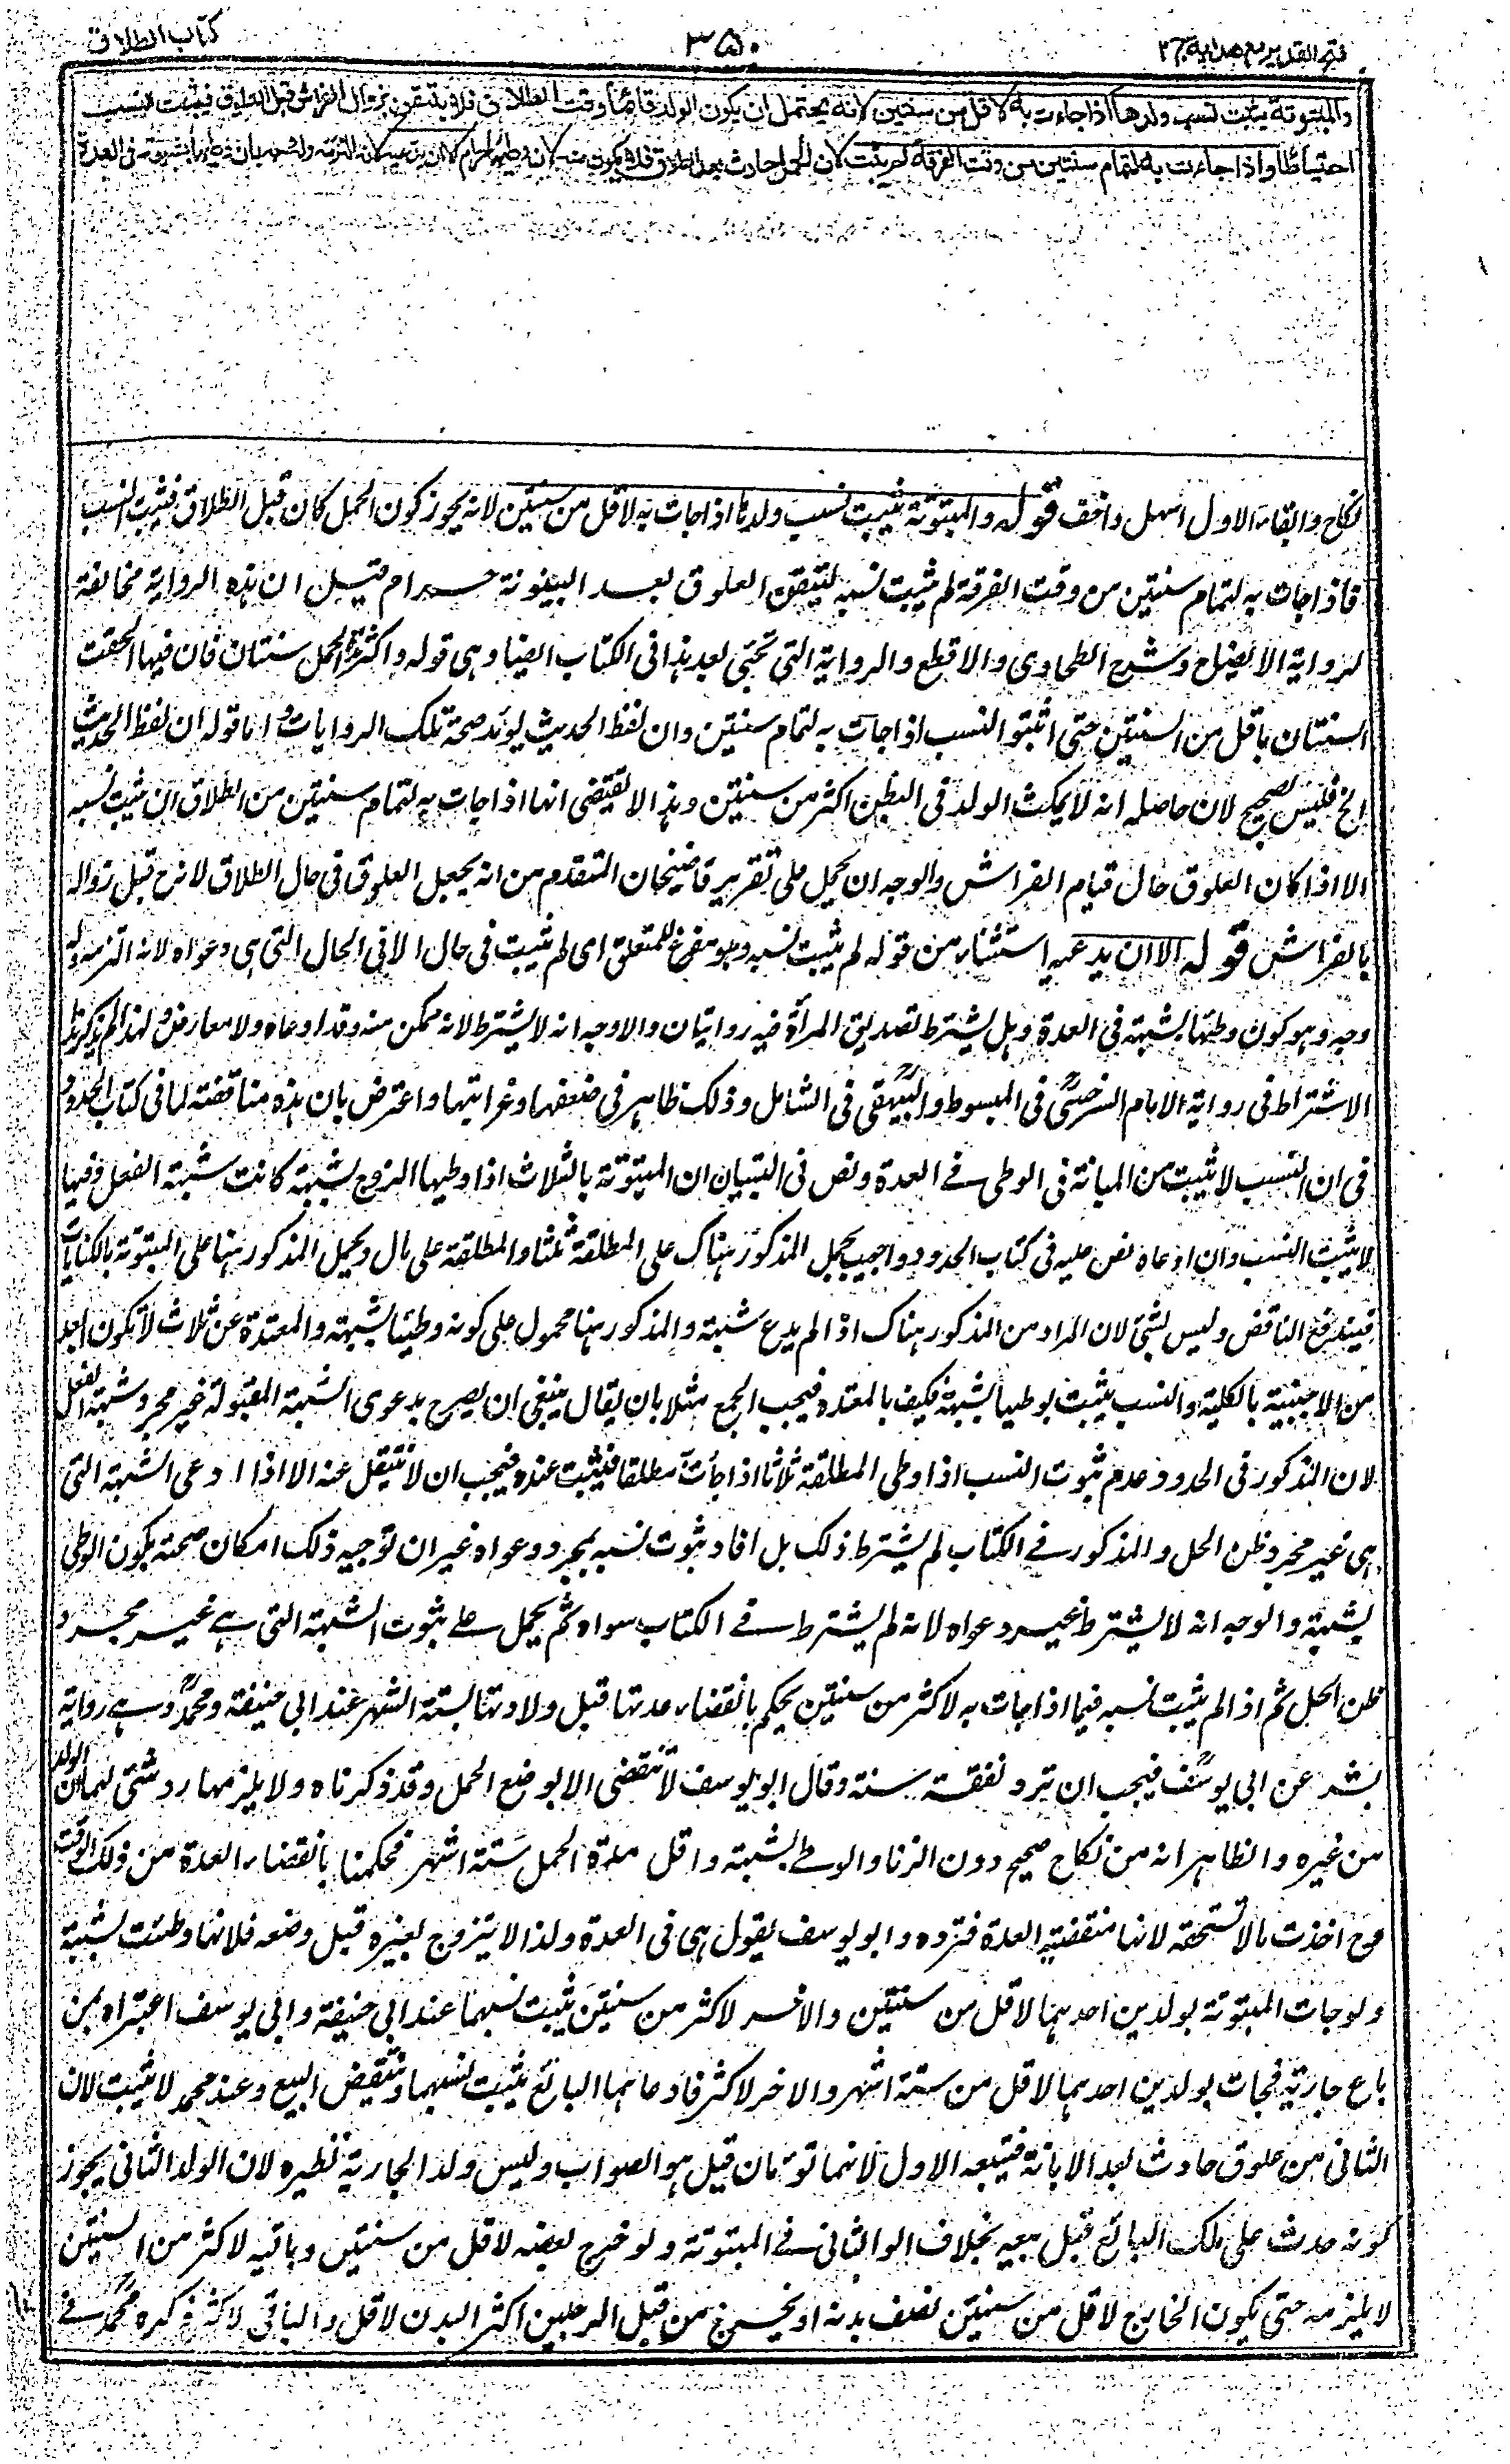 فتح القدير مع هدايه ج ٢
٣٥٠
كتاب الطلاق
والمبتوتة يثبت نسب ولدها اذا جاءت به لاقل من سنتين لانه يحتمل ان يكون الولد قائما وقت الطلاق فلا يتيقن بزوال الفراش قبل العلوق فيثبت النسب
احتياطا واذا جاءت به لتمام سنتين من وقت الفرقة لم يثبت لان الحمل حادث بعد الطلاق فلا يكون منه لان وطيها حرام الا ان يدعيه لانه التزمه وله وجه بان وطيها بشبهة في العدة
نكاح وابقاء الاول اسهل واخف قوله والمبتوتة يثبت نسب ولدها اذا جات به لاقل من سنتين لانه يجوز كون الحمل كان قبل الطلاق فيثبت النسب
فاذا جات به لتمام سنتين من وقت الفرقة لم يثبت نسبه لتيقن العلوق بعد البينونة حرام قيل ان هذه الرواية مخالفة
لرواية الايضاح وشرح الطحاوى والاقطع والرواية التى تجئ بعد هذا فى الكتاب ايضا وهى قوله واكثر مدة الحمل سنتان فان فيها الحقت
السنتان باقل من السنتين حتى اثبتو النسب اذا جات به لتمام سنتين وان لفظ الحديث يويد صحة تلك الروايات واما قوله ان لفظ الحديث
الخ فليس بصحيح لان حاصله انه لا يمكث الولد فى البطن اكثر من سنتين وهذا لا يقتضى انها اذا جات به لتمام سنتين من الطلاق ان يثبت نسبه
الا اذا كان العلوق حال قيام الفراش والوجه ان يحمل على تقرير قاضيخان المتقدم من انه يجعل العلوق فى حال الطلاق لانه ح قبل زواله
بالفراش قوله الا ان يدعيه استثناء من قوله لم يثبت نسبه وهو مفرغ للمتعلق اى لم يثبت فى حال الا فى الحال التى هى دعواه لانه التزمه وله
وجه وهو كون وطيها بشبهة فى العدة وهل يشترط تصديق المرأة فيه روايتان والاوجه انه لا يشترط لانه ممكن منه وقد ادعاه ولا معارض ولهذا لم يذكر
الاشتراط فى رواية الامام السرخسى فى المبسوط والبيهقى فى الشامل وذلك ظاهر فى ضعفها وغرابتها واعترض بان هذه مناقضة لما فى كتاب الحدود
فى ان النسب لا يثبت من المبانة فى الوطى فى العدة ونص فى التبيان ان المبتوتة بالثلاث اذا وطيها الزوج بشبهة كانت شبهة الفعل وفيها
لا يثبت النسب وان ادعاه نص عليه فى كتاب الحدود واجيب بحمل المذكور هناك على المطلقة ثلثا والمطلقة على مال وبحمل المذكور هنا على المبتوتة بالكنايات
فيندفع التناقض وليس بشئ لان المراد من المذكور هناك اذا لم يدع شبهة والمذكور هنا محمول على كونه وطيا بشبهة والمعتدة عن ثلاث لا تكون ابعد
من الاجنبية بالكلية والنسب يثبت بوطيها بشبهة فكيف بالمعتدة فيجب الجمع مثلا بان يقال ينبغى ان يصرح بدعوى الشبهة المقبولة غير مجرد شبهة الفعل
لان المذكور فى الحدود عدم ثبوت النسب اذا وطى المطلقة ثلاثا اذا جأت مطلقا فيثبت عنده فيجب ان لا ينتقل عنه الا اذا ادعى الشبهة التى
هى غير مجرد ظن الحل والمذكور فى الكتاب لم يشترط ذلك بل افاد ثبوت نسبه بمجرد دعواه غير ان توجيه ذلك امكان صحته بكون الوطى
بشبهة والوجه انه لا يشترط غير دعواه لانه لم يشترط فى الكتاب سواه ثم يحمل على ثبوت الشبهة التى هى غير مجرد
ظن الحل ثم اذا لم يثبت نسبه فيما اذا جات به لاكثر من سنتين يحكم بانقضاء عدتها قبل ولادتها بستة اشهر عند ابى حنيفة ومحمد وهى رواية
بشر عن ابى يوسف فيجب ان ترد نفقة ستة وقال ابو يوسف لا تنقضى الا بوضع الحمل وقد ذكرناه ولا يلزمها رد شئ لهما ان الولد
من غيره والظاهر انه من نكاح صحيح دون الزنا والوطى بشبهة واقل مدة الحمل ستة اشهر فحكمنا بانقضاء العدة من ذلك الوقت
فح اخذت ما لا تستحقه لانها منقضية العدة فترده وابو يوسف يقول هى فى العدة ولذا لا يتزوج بغيره قبل وضعه فلانها وطئت بشبهة
ولو جات المبتوتة بولدين احدهما لاقل من سنتين والاخر لاكثر من سنتين يثبت نسبهما عند ابى حنيفة وابى يوسف اعتبراه بمن
باع جارية فجات بولدين احدهما لاقل من ستة اشهر والاخر لاكثر فادعاهما البائع يثبت نسبهما وينتقض البيع وعند محمد لا يثبت لان
الثانى من علوق حادث بعد الابانة فيتبعه الاول لانهما توءمان قيل هو الصواب وليس ولد الجارية نظيره لان الولد الثانى يجوز
كونه حدث على ملك البائع قبل بيعه بخلاف الو الثانى فى المبتوتة ولو خرج بعضه لاقل من سنتين وباقيه لاكثر من السنتين
لا يلزمه حتى يكون الخارج لاقل من سنتين نصف بدنه او يخرج من قبل الرجلين اكثر البدن لاقل والباقى لاكثر ذكره محمد فى